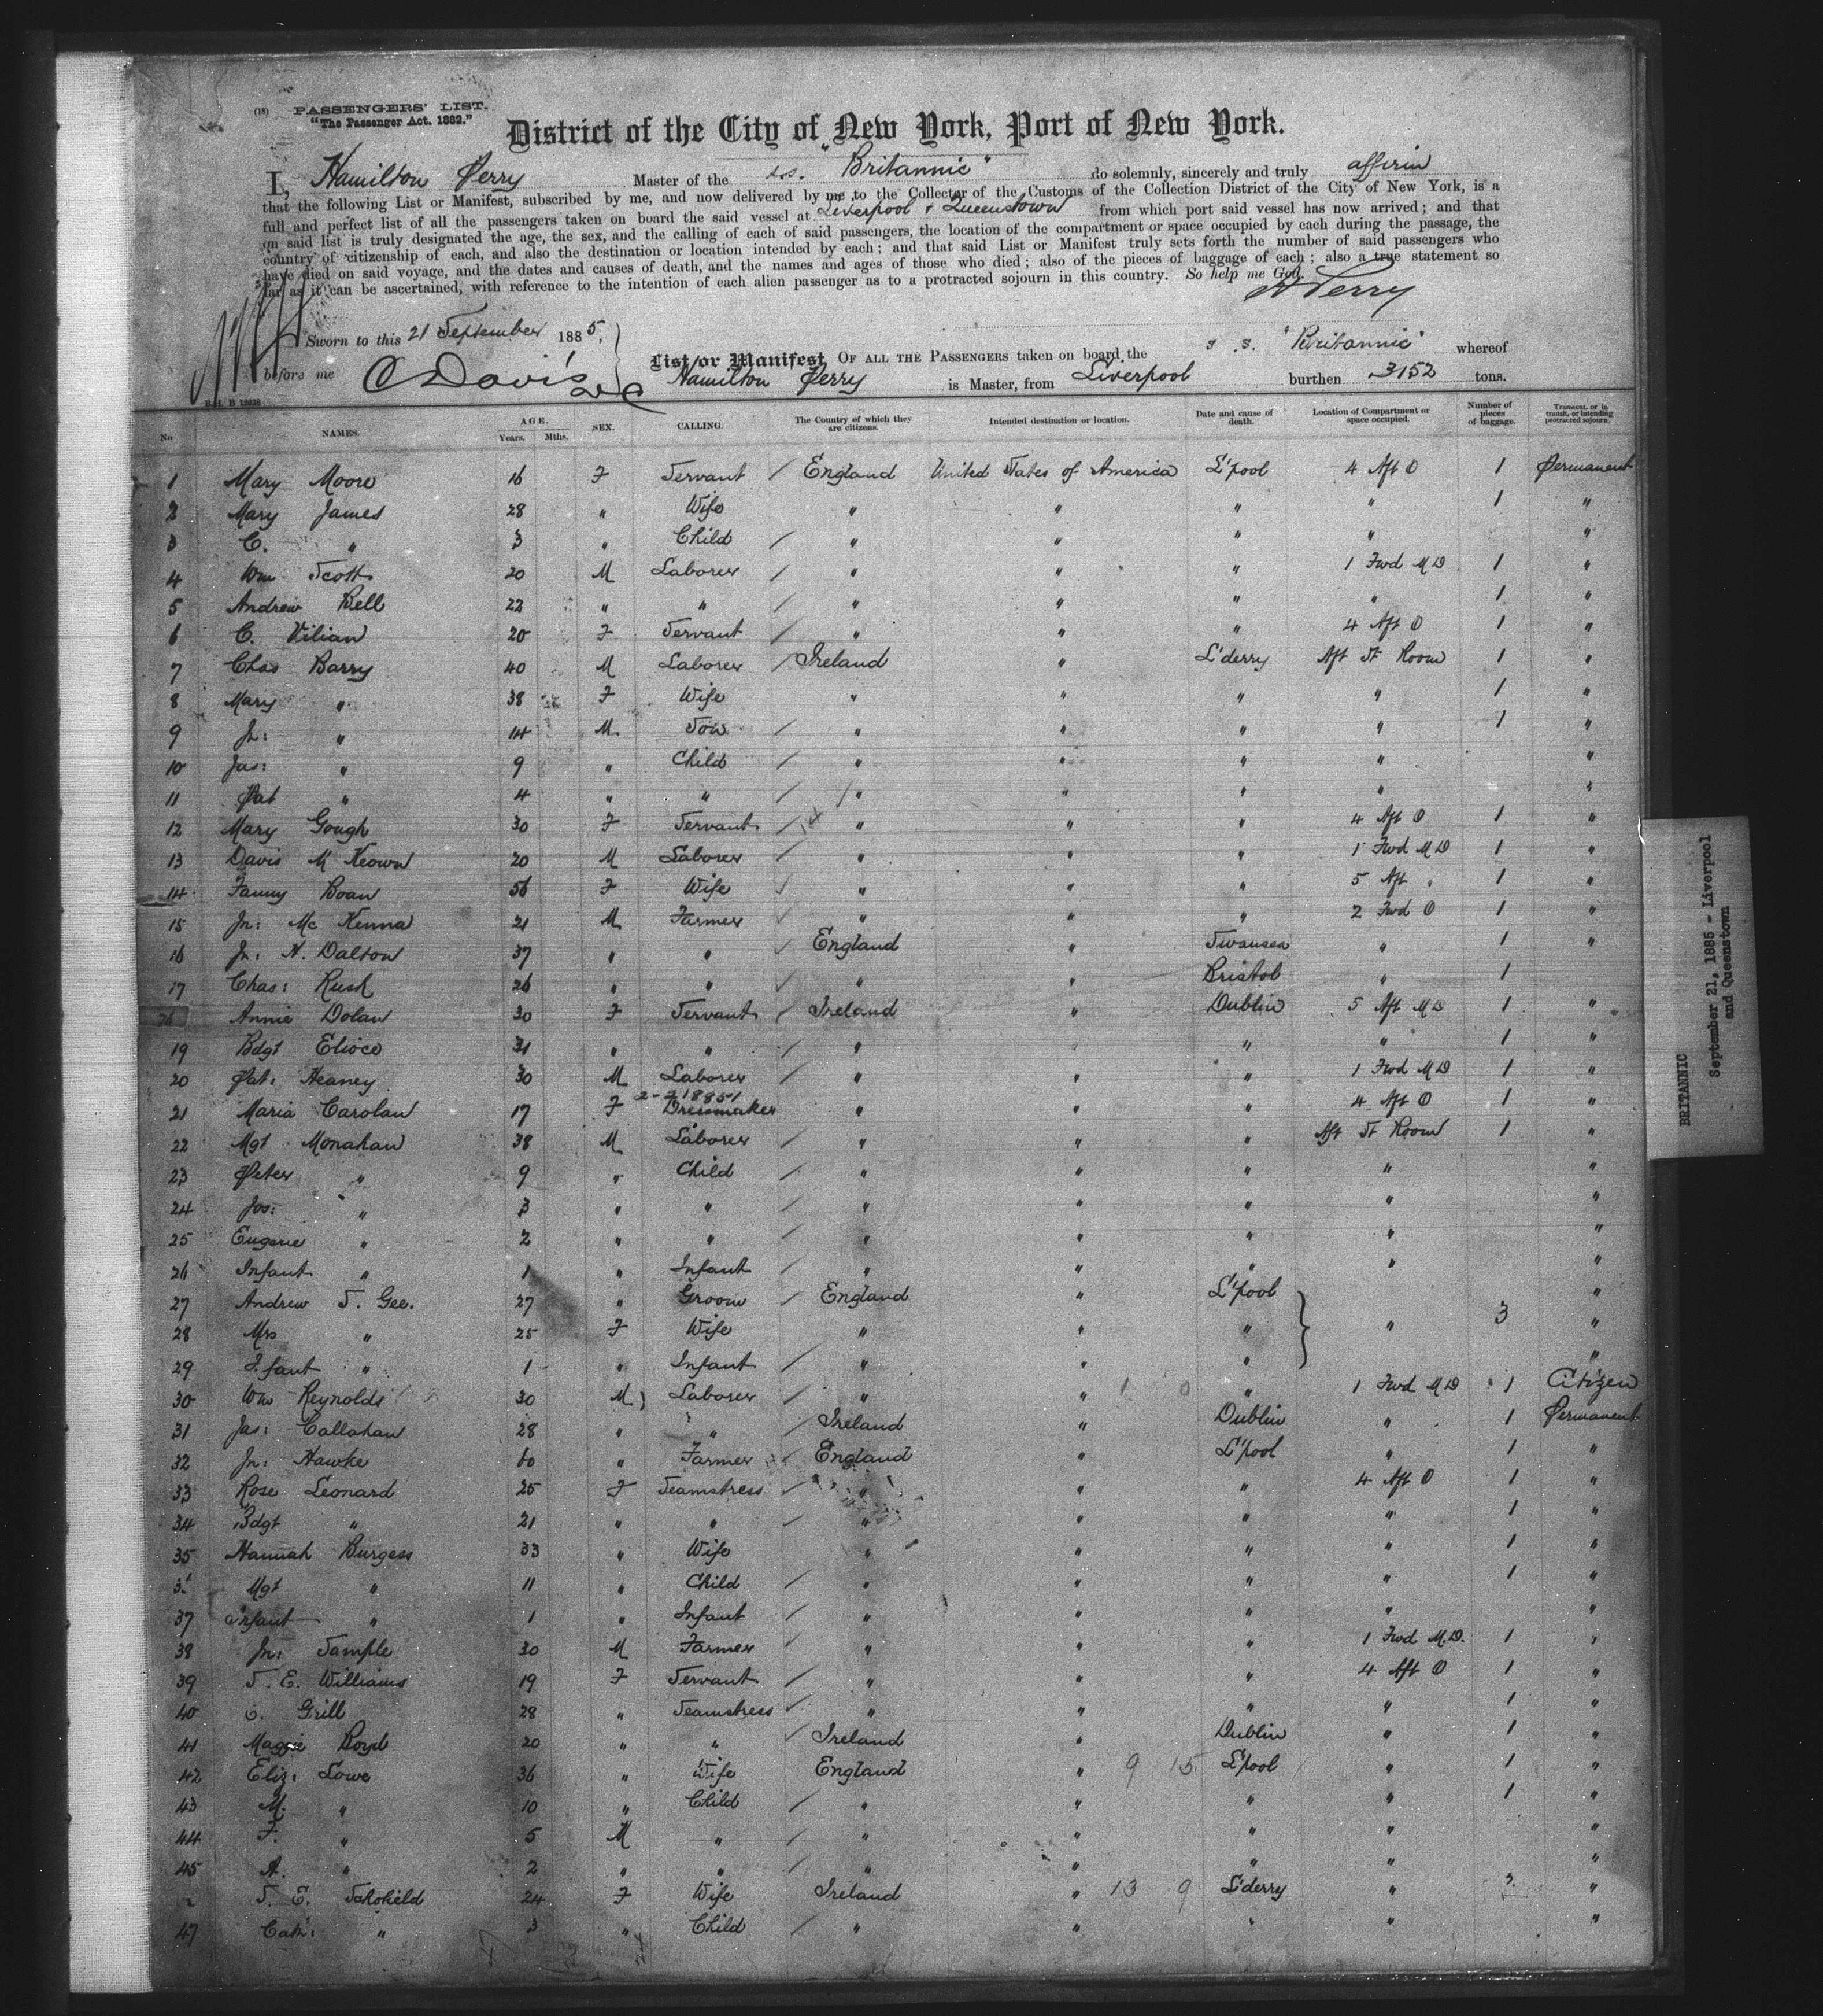 (18) PASSENGERS' LIST.
"The Passenger Act. 1882."
District of the City of New York, Port of New York.
I, Hamilton Perry Master of the s.s. "Britannic" do solemnly, sincerely and truly affirm
that the following List or Manifest, subscribed by me, and now delivered by me to the Collector of the Customs of the Collection District of the City of New York, is a
full and perfect list of all the passengers taken on board the said vessel at Liverpool & Queenstown from which port said vessel has now arrived; and that
on said list is truly designated the age, the sex, and the calling of each of said passengers, the location of the compartment or space occupied by each during the passage, the
country of citizenship of each, and also the destination or location intended by each; and that said List or Manifest truly sets forth the number of said passengers who
have died on said voyage, and the dates and causes of death, and the names and ages of those who died; also of the pieces of baggage of each; also a true statement so
far as it can be ascertained, with reference to the intention of each alien passenger as to a protracted sojourn in this country. So help me God.
H Perry
Sworn to this 21 September 1885,
before me C Davis
List or Manifest OF ALL THE PASSENGERS taken on board the s.s. "Britannic" whereof
Hamilton Perry is Master, from Liverpool burthen 3152 tons.
No NAMES. AGE. Years. Mths. SEX. CALLING. The Country of which they are citizens. Intended destination or location. Date and cause of death. Location of Compartment or space occupied. Number of pieces of baggage. Transient, or in transit, or intending protracted sojourn.
1 Mary Moore 16 F Servant / England United States of America L'pool 4 Aft O 1 Permanent
2 Mary James 28 " Wife " " " " 1 "
3 C. " 3 " Child / " " " " "
4 Wm Scott 20 M Laborer / " " " 1 Fwd MD 1 "
5 Andrew Bell 22 " " / " " " " 1 "
6 C. Vilian 20 F Servant / " " " 4 Aft O 1 "
7 Chas Barry 40 M Laborer / Ireland " L'derry Aft St Room 1 "
8 Mary " 38 F Wife " " " " 1 "
9 Jn: " 14 M Son / " " " " 1 "
10 Jas: " 9 " Child / " " " " "
11 Pat " 4 " " / " " " " "
12 Mary Gough 30 F Servant / " " " 4 Aft O 1 "
13 Davis Mc Keown 20 M Laborer / " " " 1 Fwd MD 1 "
14 Fanny Boan 56 F Wife / " " " 5 Aft " 1 "
15 Jn: Mc Kenna 21 M Farmer / " " " 2 Fwd O 1 "
16 Jn: H. Dalton 37 " " / England " Swansea " 1 "
17 Chas: Rush 26 " " / " " Bristol " 1
Annie Dolan 30 F Servant / Ireland " Dublin 5 Aft MD 1 "
19 Bdgt Elioce 31 " " / " " " " 1 "
20 Pat: Heaney 30 M Laborer / " " " 1 Fwd MD 1 "
21 Maria Carolan 17 F Dressmaker " " " 4 Aft O 1 "
22 Mgt Monahan 38 M Laborer / " " " Aft St Room 1 "
23 Peter " 9 " Child / " " " " "
24 Jos: " 3 " " / " " " " "
25 Eugene " 2 " " / " " " " "
26 Infant " 1 " Infant / " " " " "
27 Andrew S. Gee. 27 " Groom / England " L'pool "
28 Mrs " 25 F Wife " " " " 3 "
29 Infant " 1 " Infant / " " " "
30 Wm Reynolds 30 M Laborer / " " " 1 Fwd MD 1 Citizen
31 Jas: Callahan 28 " " / Ireland " Dublin " 1 Permanent
32 Jn: Hawke 60 " Farmer / England " L'pool " 1 "
33 Rose Leonard 25 F Seamstress / " " " 4 Aft O 1 "
34 Bdgt " 21 " " / " " " " 1 "
35 Hannah Burgess 33 " Wife " " " " 1 "
Mgt " 11 " Child / " " " " 1 "
37 Infant " 1 " Infant / " " " " "
38 Jn: Sample 30 M Farmer / " " " 1 Fwd M.D. 1 "
39 S. E. Williams 19 F Servant / " " " 4 Aft O 1 "
40 C. Grill 28 " Seamstress / " " " " 1 "
41 Maggie Boyd 20 " " / Ireland " Dublin " 1 "
42 Eliz: Lowe 36 " Wife England " 9 15 L'pool " 1 "
43 M. " 10 " Child / " " " " 1 "
44 F. " 5 M " / " " " " "
45 A. " 2 " " / " " " "
S. E. Schofield 24 F Wife Ireland " 13 9 L'derry " "
47 Cath: " 3 " Child / " " " " "
BRITANNIC
September 21, 1885 - Liverpool
and Queenstown